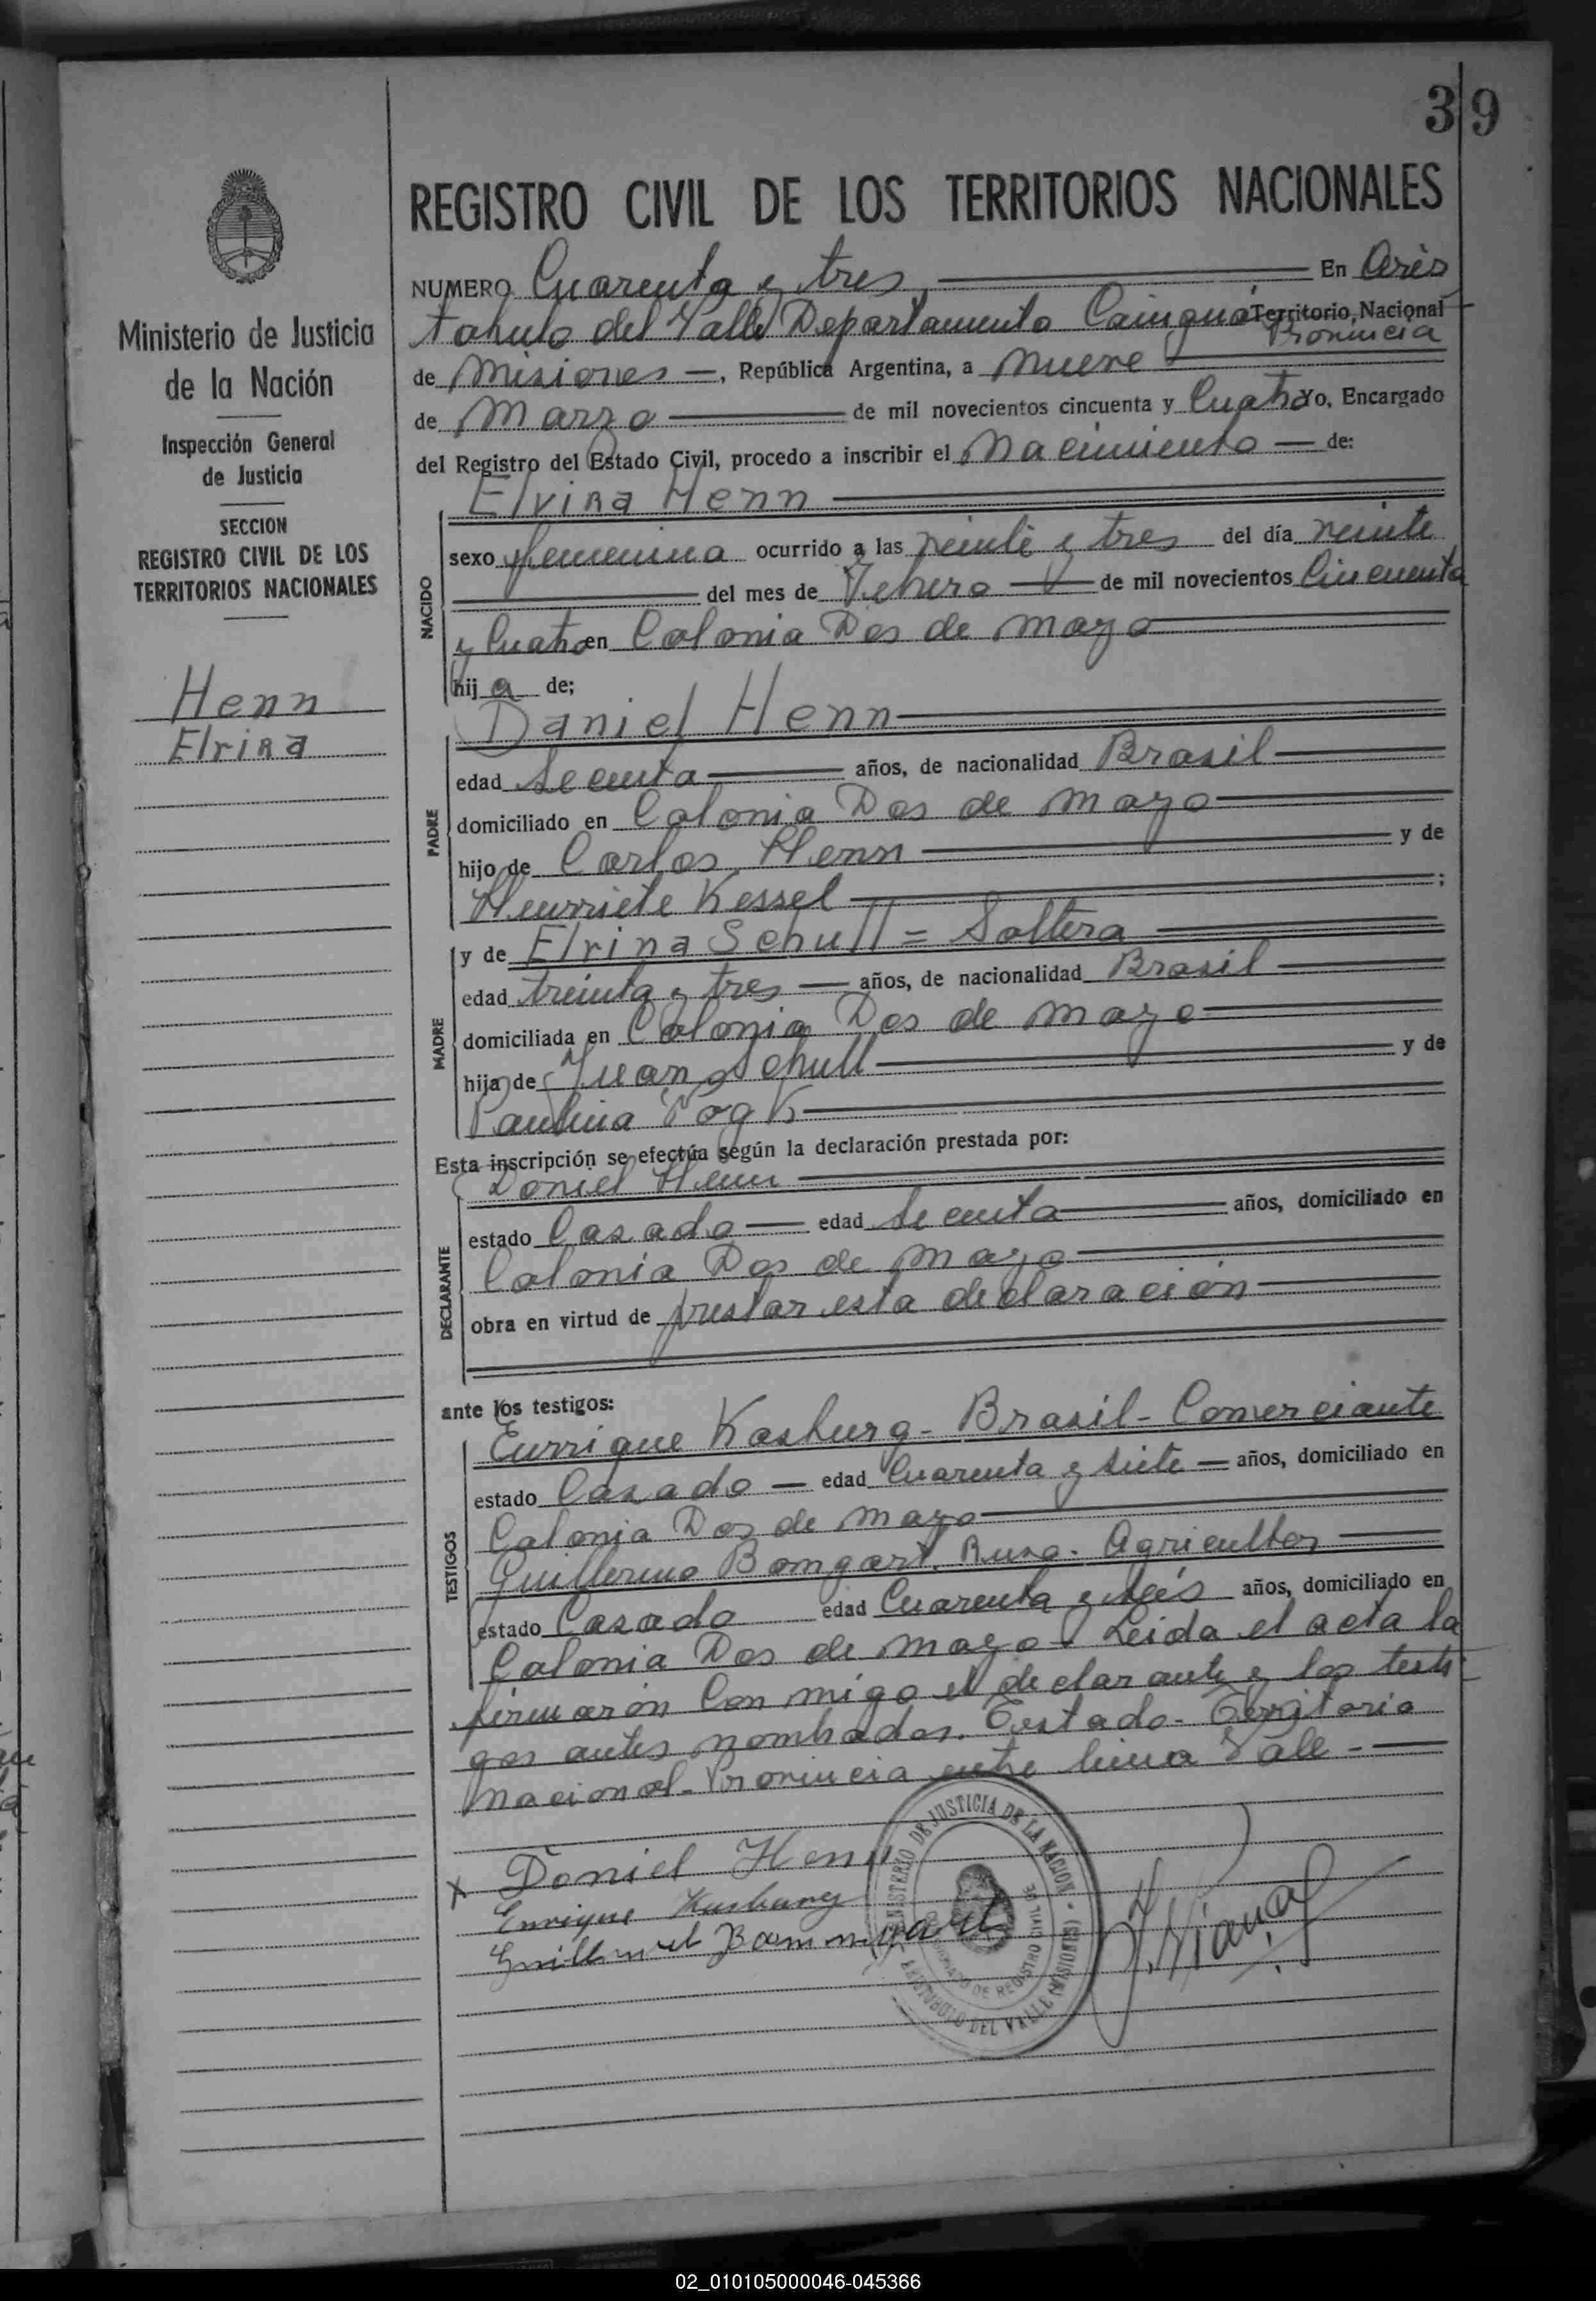 39
REGISTRO CIVIL DE LOS TERRITORIOS NACIONALES
Ministerio de Justicia
de la Nación
Inspección General
de Justicia
SECCION
REGISTRO CIVIL DE LOS
TERRITORIOS NACIONALES
Henn
Elvira
NUMERO Cuarenta y tres En Aris
tobulo del Valle Departamento Cainguá Territorio Nacional
Provincia
de Misiones —, República Argentina, a nueve
de Marzo de mil novecientos cincuenta y Cuatro Yo, Encargado
del Registro del Estado Civil, procedo a inscribir el Nacimiento — de:
NACIDO
Elvira Henn
sexo femenina ocurrido a las veinte y tres del día veinte
del mes de Febrero de mil novecientos Cincuenta
y Cuatro en Colonia Dos de mayo
hij a de;
PADRE
Daniel Henn
edad años, de nacionalidad Brasil
domiciliado en Colonia Dos de mayo
hijo de Carlos Henn y de
Henrriete Kessel ;
MADRE
y de Elvina Schull = Soltera
edad treinta y tres — años, de nacionalidad Brasil
domiciliada en Colonia Dos de mayo
hija de Juan Schull y de
Paulina
Esta inscripción se efectúa según la declaración prestada por:
DECLARANTE
Doniel Henn
estado Casado — edad años, domiciliado en
Colonia Dos de mayo
obra en virtud de prestar esta declaración
ante los testigos:
TESTIGOS
Enrrique Kasburg - Brasil - Comerciante
estado Casado — edad Cuarenta y siete — años, domiciliado en
Colonia Dos de mayo
Guillermo Bomgart. Ruso. Agricultor
estado Casado edad Cuarenta y años, domiciliado en
Colonia Dos de mayo. Leida el acta la
firmaron Con migo el declarante y los testi
gos antes nombrados. Testado - Territorio
nacional - Provincia entre linea Vale -
x Doniel Henn
Enrique Kasburg
MINISTERIO DE JUSTICIA DE LA NACION
REGISTRO CIVIL DE
ARISTOBULO DEL VALLE (MISIONES)
02_010105000046-045366